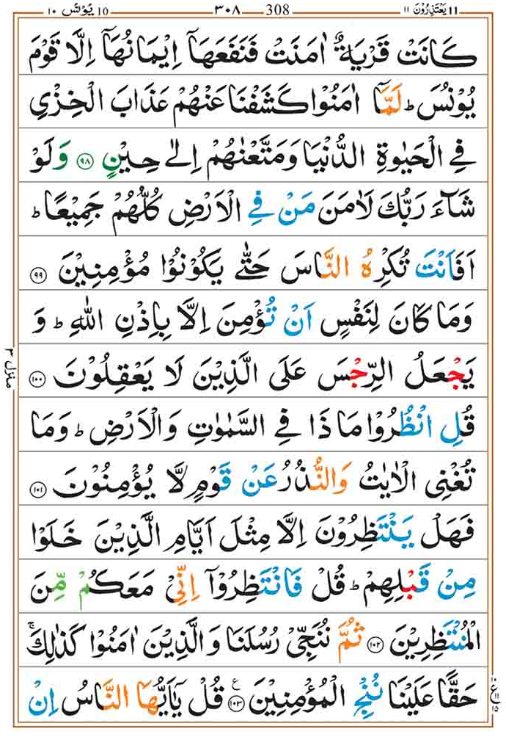 یَعْتَذِرُوْنَ ۱۱ 11 ۳۰۸ 308 یُوْنُسَ ۱۰ 10
كَانَتْ قَرْیَةٌ اٰمَنَتْ فَنَفَعَهَاۤ اِیْمَانُهَاۤ اِلَّا قَوْمَ
یُوْنُسَ ؕ لَمَّاۤ اٰمَنُوْا كَشَفْنَا عَنْهُمْ عَذَابَ الْخِزْیِ
فِی الْحَیٰوةِ الدُّنْیَا وَ مَتَّعْنٰهُمْ اِلٰی حِیْنٍ ﴿۹۸﴾ وَ لَوْ
شَآءَ رَبُّكَ لَاٰمَنَ مَنْ فِی الْاَرْضِ كُلُّهُمْ جَمِیْعًا ؕ
اَفَاَنْتَ تُكْرِهُ النَّاسَ حَتّٰی یَكُوْنُوْا مُؤْمِنِیْنَ ﴿۹۹﴾
وَ مَا كَانَ لِنَفْسٍ اَنْ تُؤْمِنَ اِلَّا بِاِذْنِ اللّٰهِ ؕ وَ
یَجْعَلُ الرِّجْسَ عَلَی الَّذِیْنَ لَا یَعْقِلُوْنَ ﴿۱۰۰﴾
قُلِ انْظُرُوْا مَا ذَا فِی السَّمٰوٰتِ وَ الْاَرْضِ ؕ وَ مَا
تُغْنِی الْاٰیٰتُ وَ النُّذُرُ عَنْ قَوْمٍ لَّا یُؤْمِنُوْنَ ﴿۱۰۱﴾
فَهَلْ یَنْتَظِرُوْنَ اِلَّا مِثْلَ اَیَّامِ الَّذِیْنَ خَلَوْا
مِنْ قَبْلِهِمْ ؕ قُلْ فَانْتَظِرُوْۤا اِنِّیْ مَعَكُمْ مِّنَ
الْمُنْتَظِرِیْنَ ﴿۱۰۲﴾ ثُمَّ نُنَجِّیْ رُسُلَنَا وَ الَّذِیْنَ اٰمَنُوْا كَذٰلِكَ ۚ
حَقًّا عَلَیْنَا نُنْجِ الْمُؤْمِنِیْنَ ﴿۱۰۳﴾ ع قُلْ یٰۤاَیُّهَا النَّاسُ اِنْ
منزل ۳